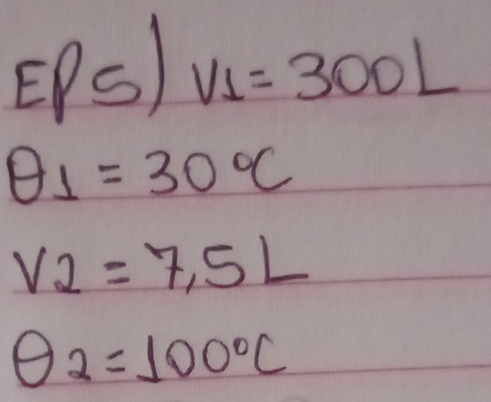 EP5) V1 = 300L
θ1 = 30°C
V2 = 7,5L
θ2 = 100°C